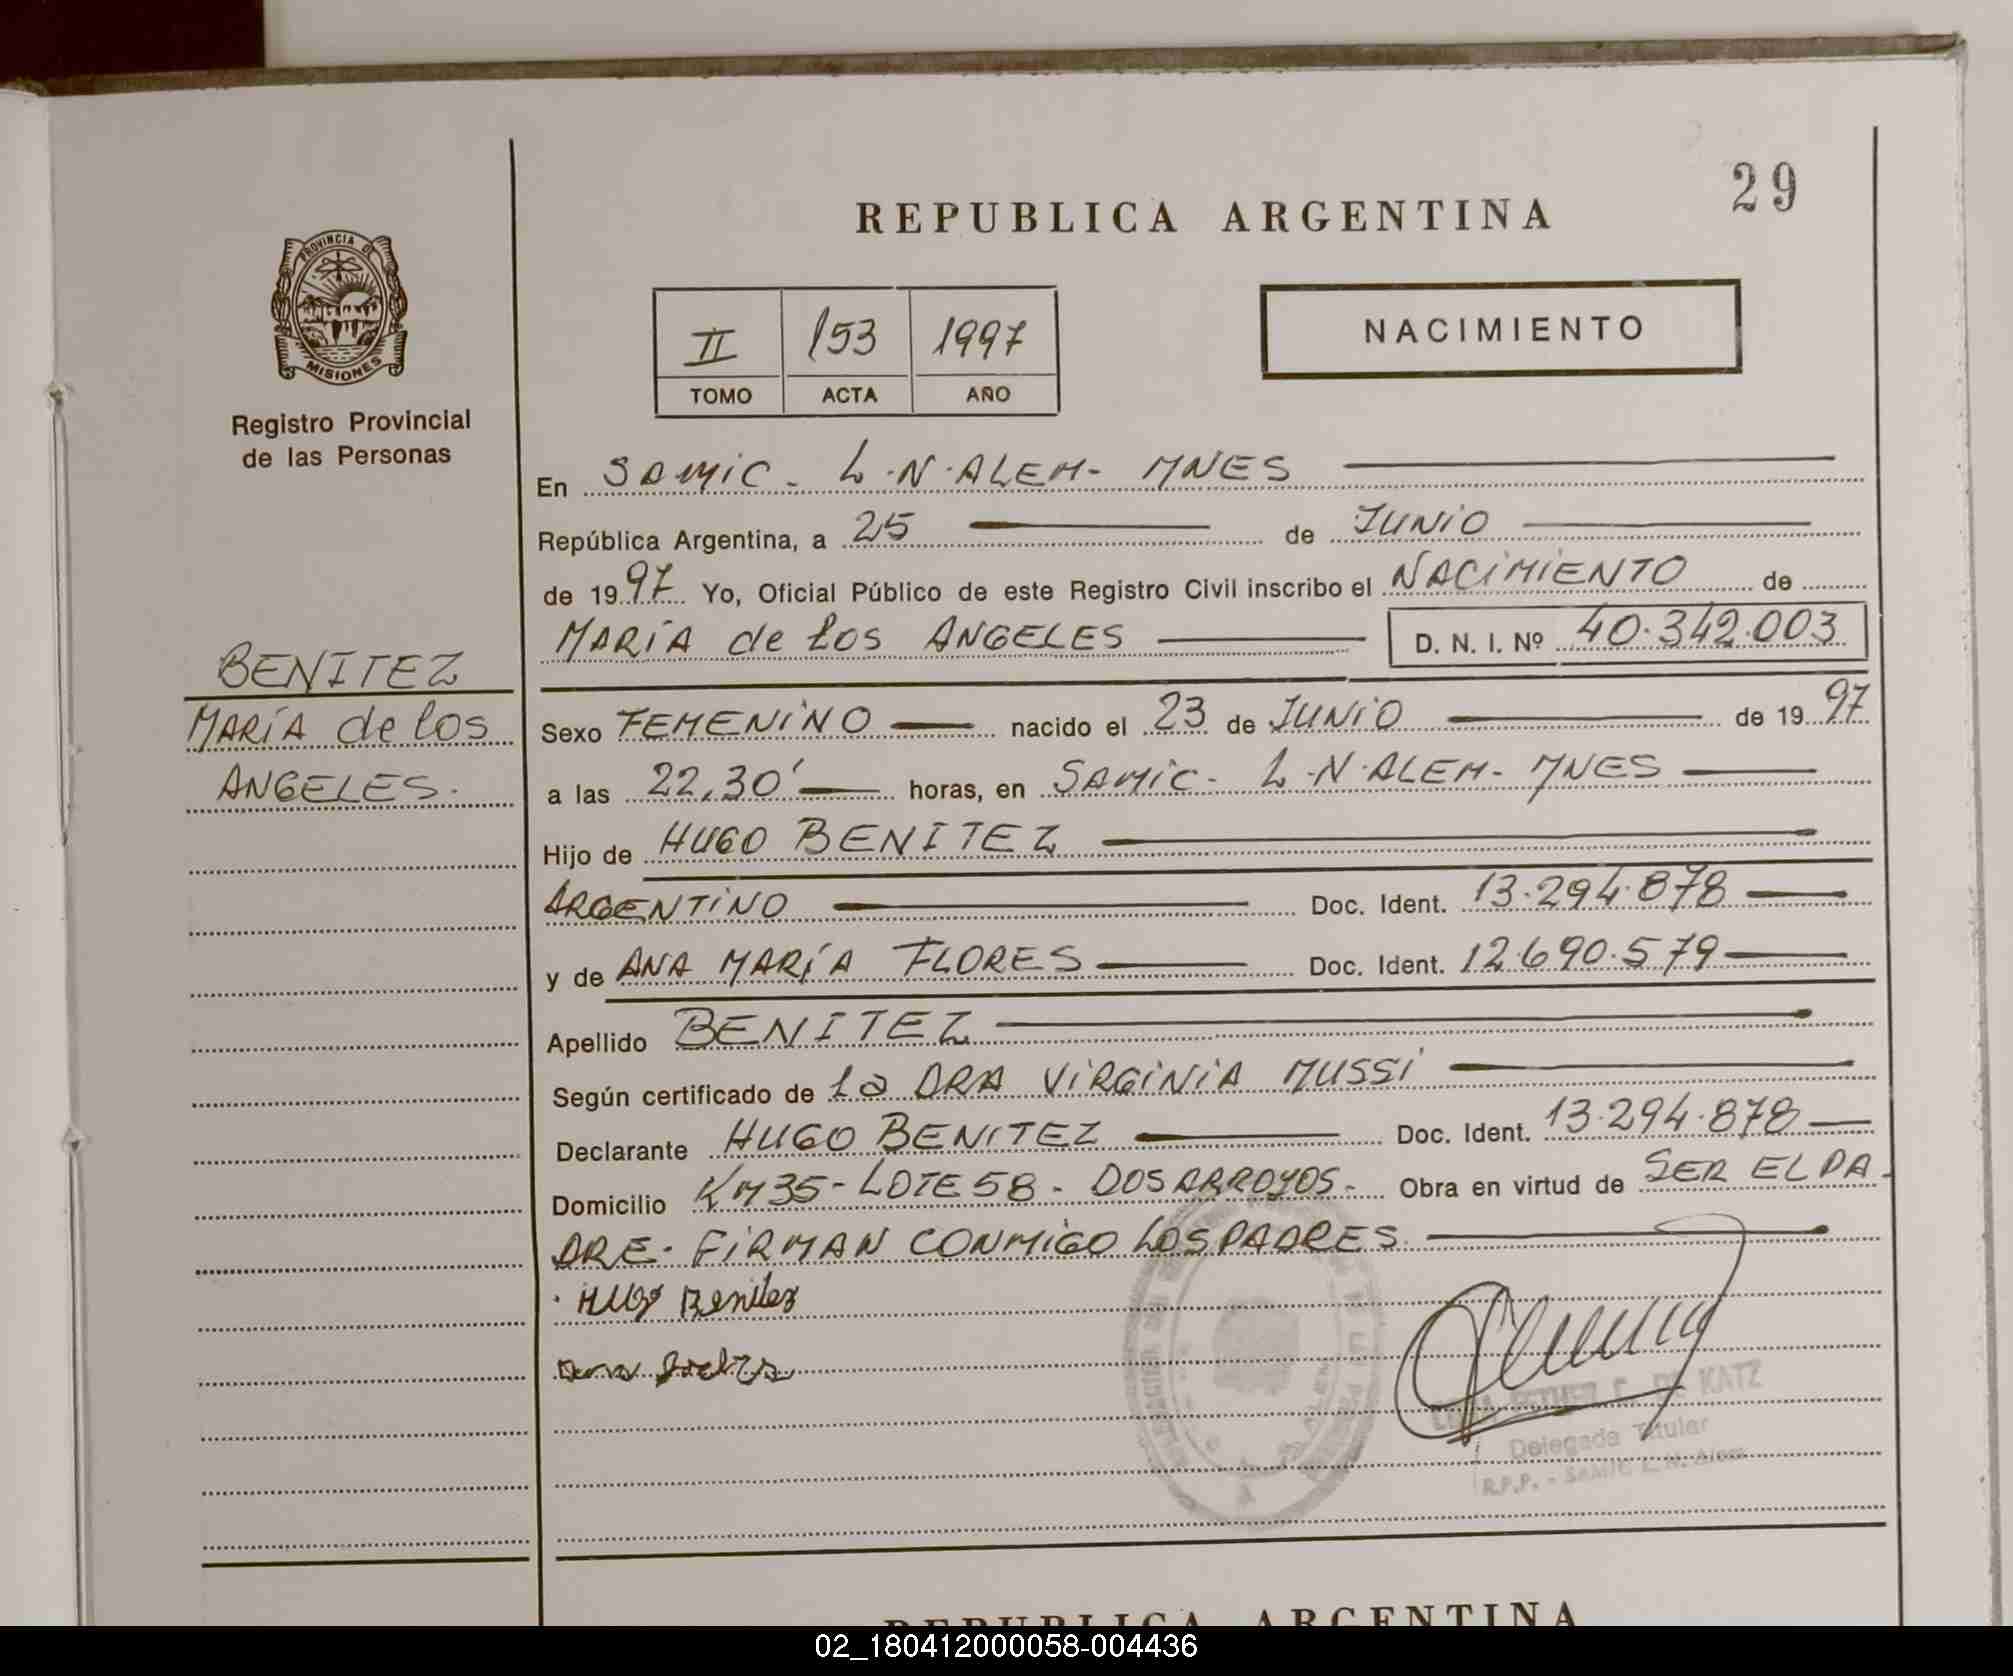 29
REPUBLICA ARGENTINA
PROVINCIA DE
MISIONES
Registro Provincial
de las Personas
II 153 1997
TOMO ACTA AÑO
NACIMIENTO
En SAMIC - L.N.ALEM - MNES
República Argentina, a 25 de JUNIO
de 1997 Yo, Oficial Público de este Registro Civil inscribo el NACIMIENTO de
MARÍA de los ANGELES D. N. I. Nº 40.342.003
BENITEZ
MARÍA de los
ANGELES.
Sexo FEMENINO nacido el 23 de JUNIO de 1997
a las 22,30' horas, en SAMIC - L.N.ALEM - MNES
Hijo de HUGO BENITEZ
ARGENTINO Doc. Ident. 13.294.878
y de ANA MARÍA FLORES Doc. Ident. 12.690.579
Apellido BENITEZ
Según certificado de la DRA VIRGINIA MUSSI
Declarante HUGO BENITEZ Doc. Ident. 13.294.878
Domicilio KM 35 - LOTE 58 - DOS ARROYOS - Obra en virtud de SER EL PA-
DRE. FIRMAN CONMIGO LOS PADRES
Hugo Benitez
DE KATZ
Delegada Titular
R.P.P. - SAMIC L. N. Alem
REPUBLICA ARGENTINA
02_180412000058-004436